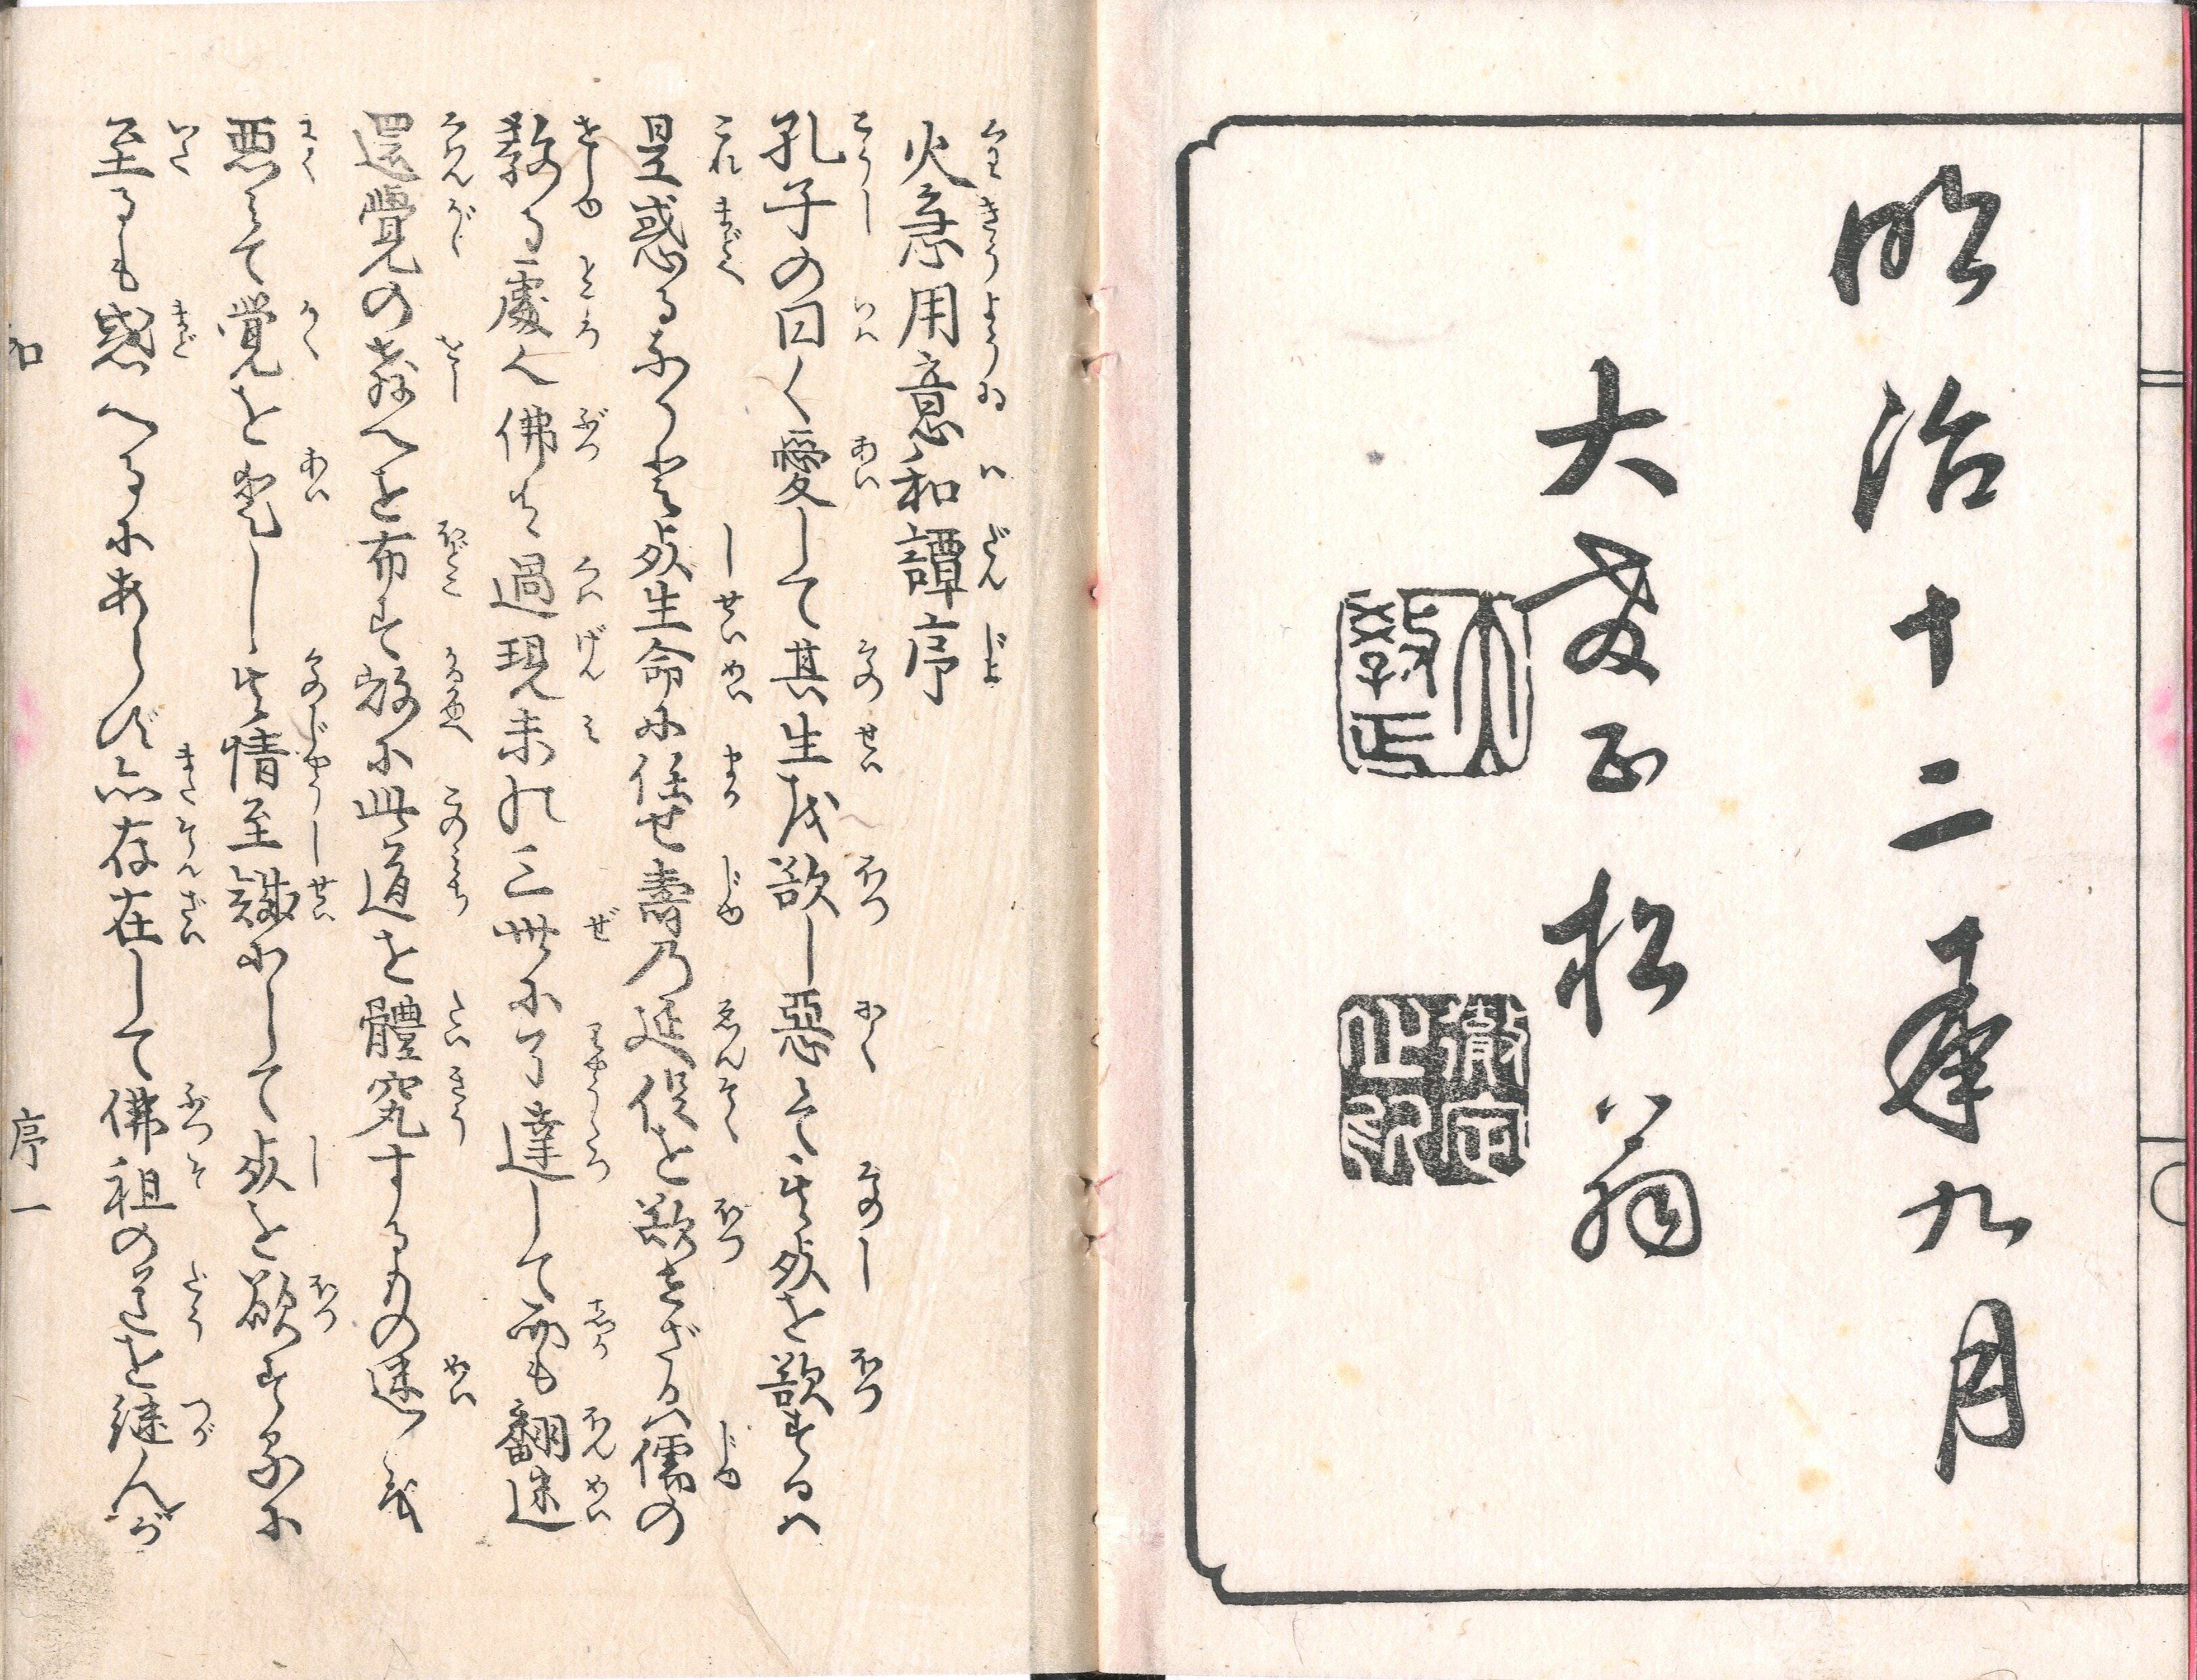 明治十二年九月
大教正松翁
大教正
徹定之印
火急用意和譚序
孔子の曰く愛して其生を欲し惡みて其死を欲するハ
是惑るなりと死生命に任せ壽乃延促を欲せざるハ儒の
教る處へ佛は過現未の三世に了達して而も翻迷
還覺の教へを布す故に此道を體究するもの迷を
悪みて覚を愛し其情至誠にして死を欲するに
至るも惑へるにあらず亦存在して佛祖の道を継んが
序一